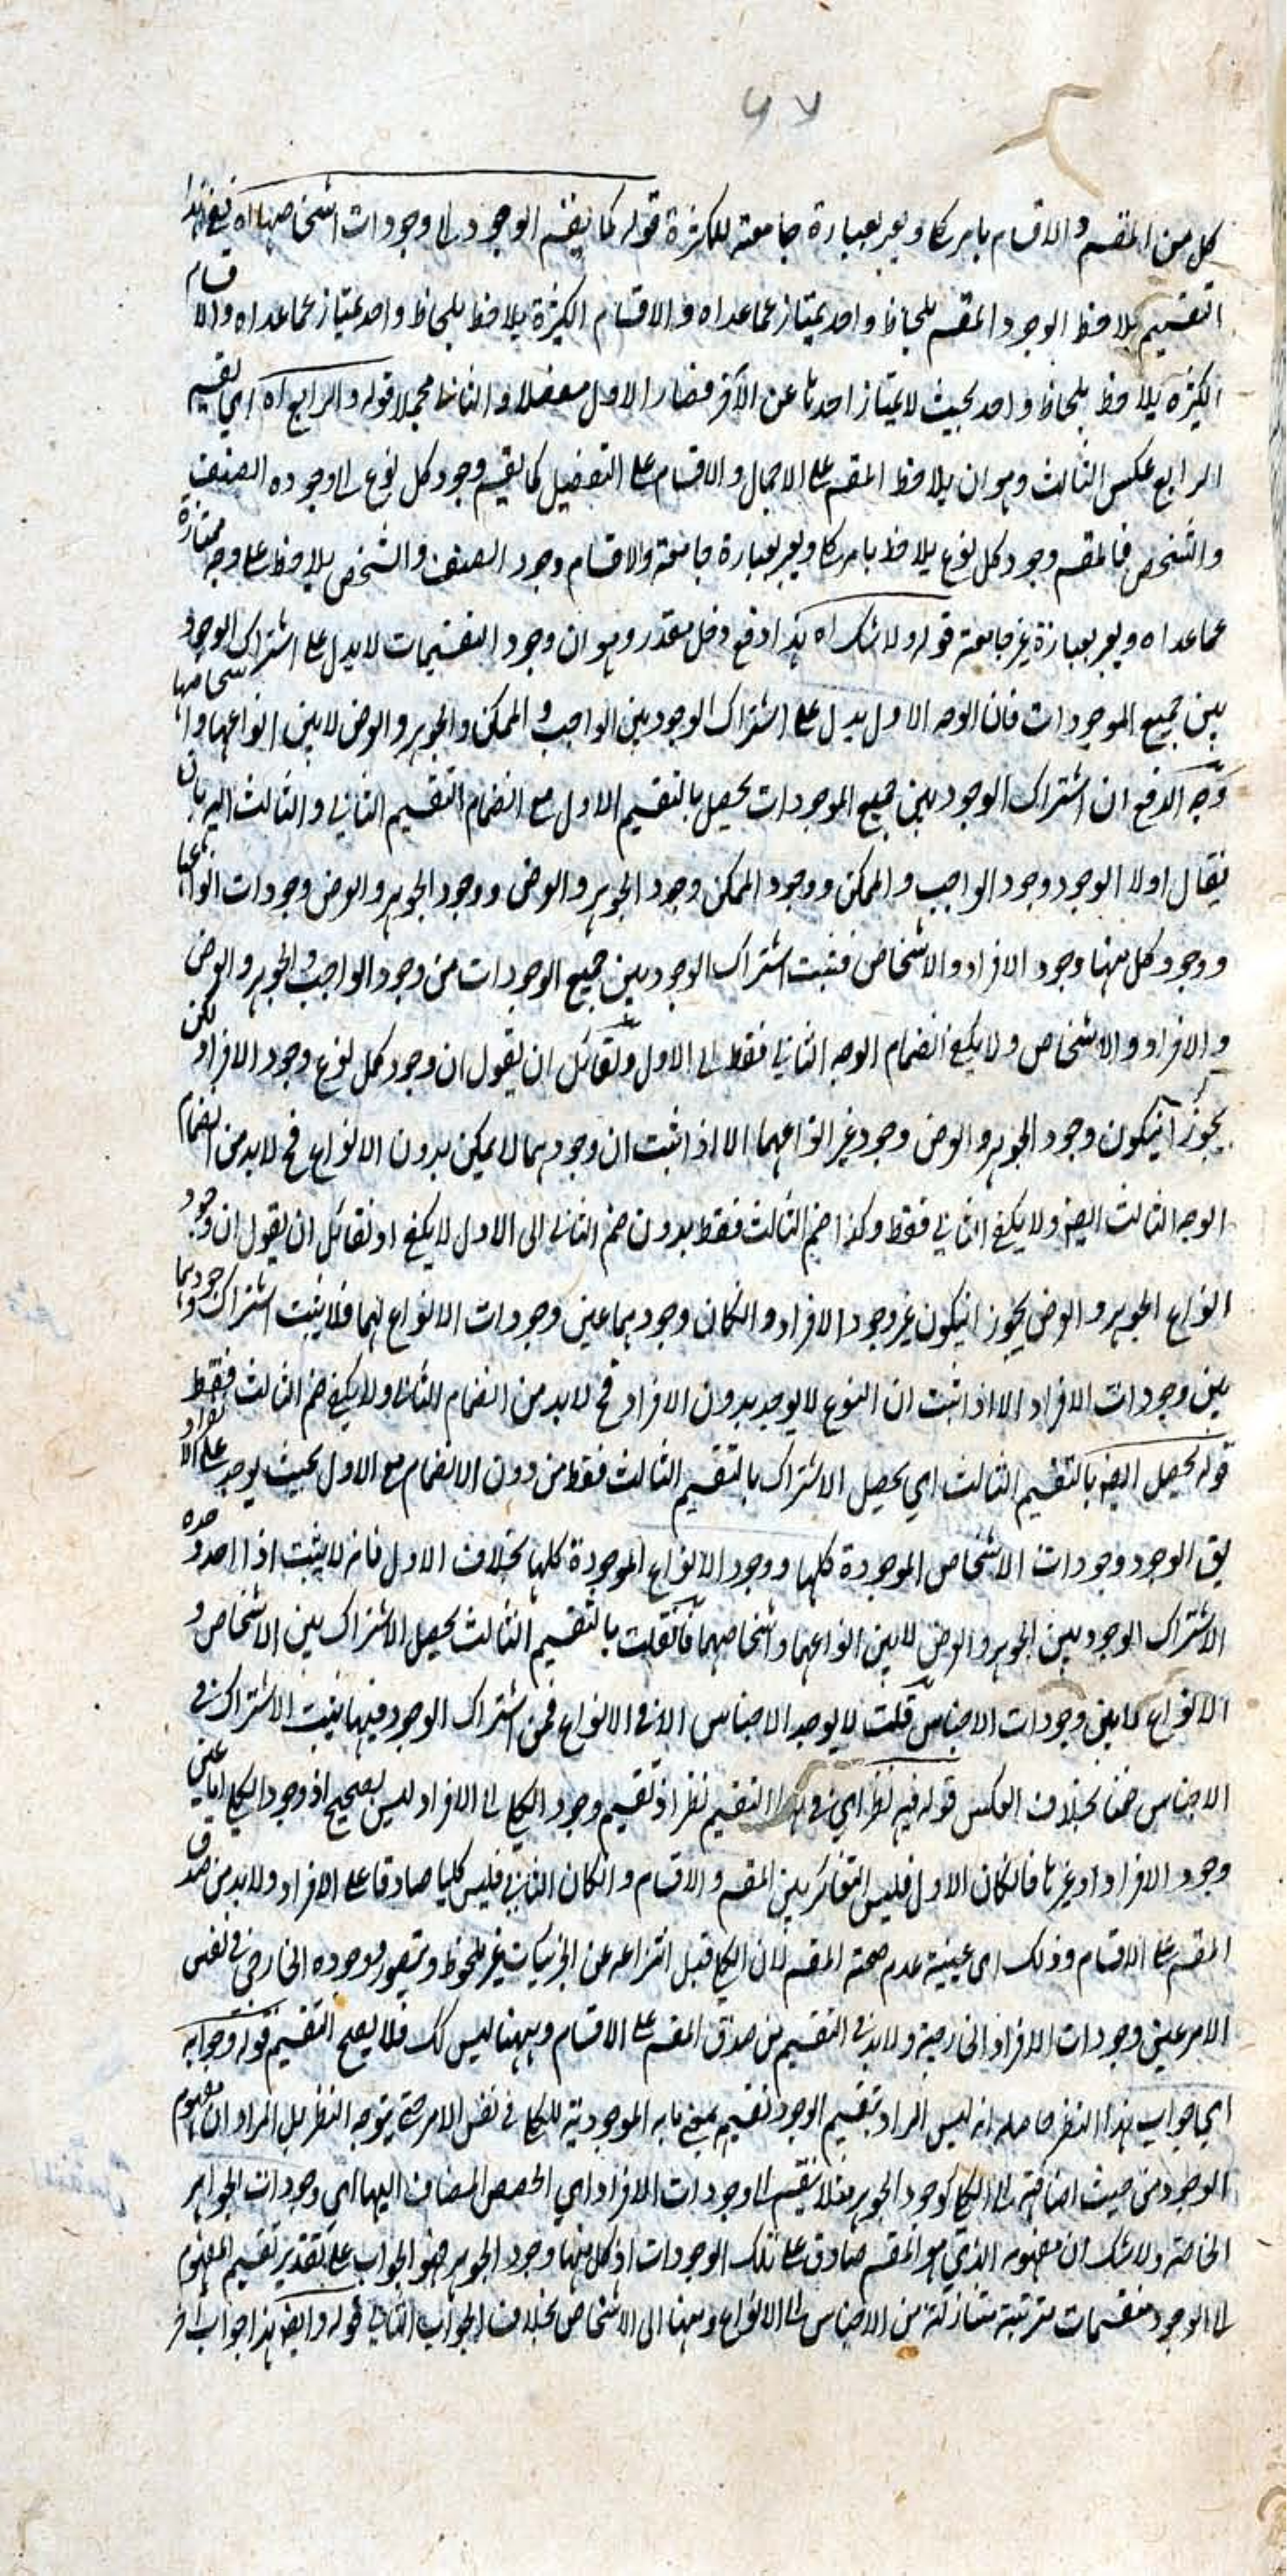 كل من المقسم والاقسام بامر كلي ويعبر بعبارة جامعة للكثرة قوله كما يقسم الوجود الى وجودات اشخاصهما اه ففي هذا
التقسيم يلاحظ الوجود المقسم بلحاظ واحد يمتاز عما عداه والاقسام الكثيرة يلاحظ بلحاظ واحد يمتاز عما عداه والاقسام
الكثيرة يلاحظ بلحاظ واحد بحيث لا يمتاز احدها عن الآخر فصار الاول مفصلا والثاني مجملا قوله والرابع اه اي تقسيم
الرابع عكس الثالث وهو ان يلاحظ المقسم على الاجمال والاقسام على التفصيل كما يقسم وجود كل نوع الى وجوده الصنفي
والشخص فالمقسم وجود كل نوع يلاحظ بامر كلي ويعبر بعبارة جامعة والاقسام وجود الصنف والشخص يلاحظ على وجه ممتازة
عما عداه ويعبر بعبارة غير جامعة قوله ولا شك اه هذا دفع دخل مقدر وهو ان وجود التقسيمات لا يدل على اشتراك الوجود
بين جميع الموجودات فان الوجه الاول يدل على اشتراك الوجود بين الواجب والممكن والجوهر والعرض لا بين انواعهما واشخاصهما
وجه الدفع ان اشتراك الوجود بين جميع الموجودات يحصل بالتقسيم الاول مع انضمام التقسيم الثاني والثالث اليه بان
يقال اولا الوجود وجود الواجب والممكن ووجود الممكن وجود الجوهر والعرض ووجود الجوهر والعرض وجودات انواعهما
ووجود كل منهما وجود الافراد والاشخاص فثبت اشتراك الوجود بين جميع الوجودات من وجود الواجب والجوهر والعرض
والافراد والاشخاص ولا يكفي انضمام الوجه الثاني فقط الى الاول ولقائل ان يقول ان وجود كل نوع وجود الافراد لكن
يجوز ان يكون وجود الجوهر والعرض وجود غير انواعهما الا اذا ثبت ان وجودهما لا يمكن بدون الانواع فح لا بد من انضمام
الوجه الثالث ايضا ولا يكفي الثاني فقط وكذا ضم الثالث فقط بدون ضم الثاني الى الاول لا يكفي اذ لقائل ان يقول ان وجود
انواع الجوهر والعرض يجوز ان يكون غير وجود الافراد وان كان وجودهما عين وجودات الانواع لهما فلا يثبت اشتراك وجودهما
بين وجودات الافراد الا اذا ثبت ان النوع لا يوجد بدون الافراد فح لا بد من انضمام الثاني ولا يكفي ضم الثالث فقط
قوله يحصل ايضا بالتقسيم الثالث اي يحصل الاشتراك بالتقسيم الثالث فقط من دون الانضمام مع الاول بحيث يوجد على الانفراد
يق الوجود وجودات الاشخاص الموجودة كلها ووجود الانواع الموجودة كلها بخلاف الاول فانه لا يثبت اذا اخذ وحده
الاشتراك الوجود بين الجوهر والعرض لا بين انواعهما واشخاصهما فان قلت بالتقسيم الثالث يحصل الاشتراك بين الاشخاص و
الانواع لا بين وجودات الاجناس قلت لا يوجد الاجناس الا في الانواع فمن اشتراك الوجود فيهما يثبت الاشتراك في
الاجناس ضمنا بخلاف العكس قوله فيه نظر اي في هذا التقسيم نظر اذ تقسيم وجود الكلي الى الافراد ليس بصحيح اذ وجود الكلي اما عين
وجود الافراد او غيرها فان كان الاول فليس التغاير بين المقسم والاقسام وان كان الثاني فليس كليا صادقا على الافراد ولا بد من صدق
المقسم على الاقسام وذلك اي عينية عدم صحة المقسم لان الكلي قبل انتزاعه عن الجزئيات غير ملحوظ ومتصور ووجوده الخارجي في نفس
الامر عين وجودات الافراد الخارجية ولا بد في التقسيم من صدق المقسم على الاقسام وههنا ليس كك فلا يصح التقسيم قوله وجوابه
اي جواب هذا النظر حاصله انه ليس المراد بتقسيم الوجود تقسيم بمعنى ما به الموجودية للكلي في نفس الامر حتى يتوجه النظر بل المراد ان مفهوم
الوجود من حيث اضافته الى الكلي كوجود الجوهر مثلا ينقسم الى وجودات الافراد اي الحصص المضاف اليها اي وجودات الجواهر
الخاصة ولا شك ان مفهومه الذي هو المقسم صادق على تلك الوجودات اذ كل منها وجود الجوهر فهو الجواب على تقدير تقسيم المفهوم
الى الوجود منقسمات مترتبة متنازلة من الاجناس الى الانواع ومنها الى الاشخاص بخلاف الجواب الثاني قوله وايضا هذا جواب آخر